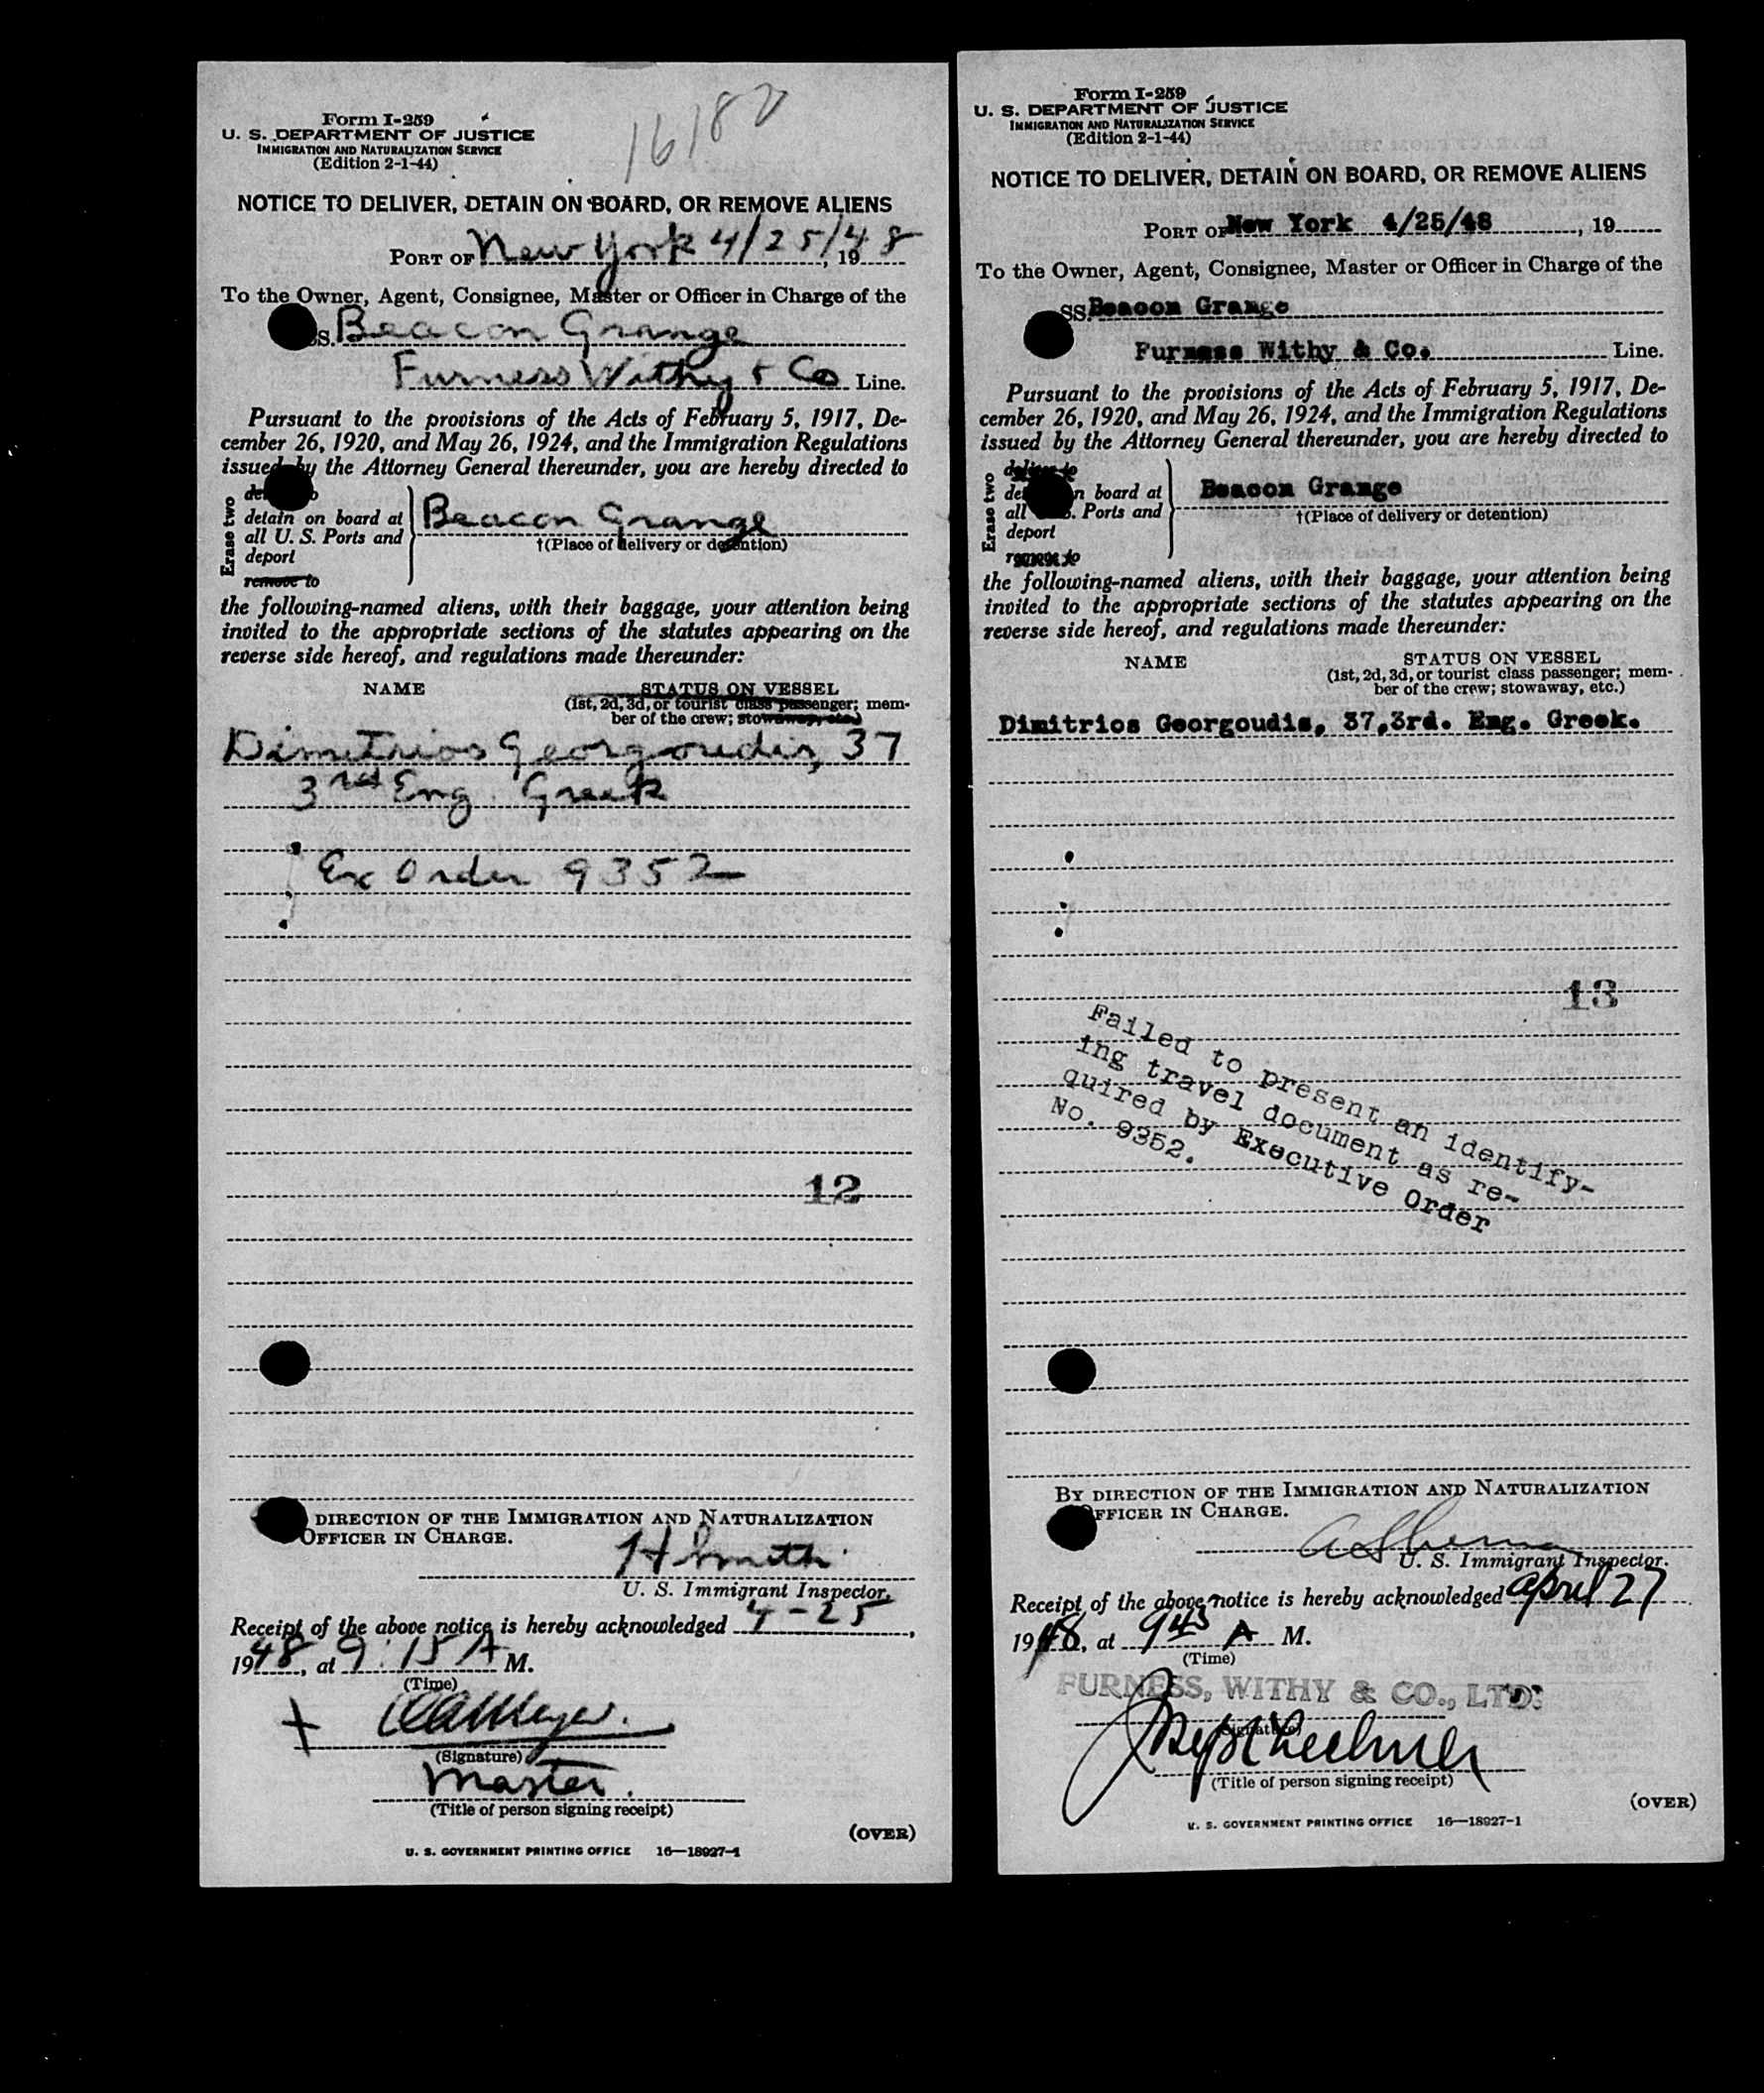 16182
Form I-259
U. S. DEPARTMENT OF JUSTICE
IMMIGRATION AND NATURALIZATION SERVICE
(Edition 2-1-44)
NOTICE TO DELIVER, DETAIN ON BOARD, OR REMOVE ALIENS
PORT OF New York 4/25/48, 19
To the Owner, Agent, Consignee, Master or Officer in Charge of the
SS. Beacon Grange
Furness Withy & Co Line.
Pursuant to the provisions of the Acts of February 5, 1917, De-
cember 26, 1920, and May 26, 1924, and the Immigration Regulations
issued by the Attorney General thereunder, you are hereby directed to
Erase two
detain on board at
all U. S. Ports and
deport
remove to
Beacon Grange
†(Place of delivery or detention)
the following-named aliens, with their baggage, your attention being
invited to the appropriate sections of the statutes appearing on the
reverse side hereof, and regulations made thereunder:
NAME
STATUS ON VESSEL
(1st, 2d, 3d, or tourist class passenger; mem-
ber of the crew; stowaway, etc.)
Dimitrios Georgoudis, 37
3rd Eng. Greek
Ex Order 9352
12
DIRECTION OF THE IMMIGRATION AND NATURALIZATION
OFFICER IN CHARGE.
H Smith
U. S. Immigrant Inspector.
Receipt of the above notice is hereby acknowledged 4-25,
1948, at 9:15 A M.
(Time)
(Signature)
Master.
(Title of person signing receipt)
(OVER)
U. S. GOVERNMENT PRINTING OFFICE 16—18927-1
Form I-259
U. S. DEPARTMENT OF JUSTICE
IMMIGRATION AND NATURALIZATION SERVICE
(Edition 2-1-44)
NOTICE TO DELIVER, DETAIN ON BOARD, OR REMOVE ALIENS
PORT OF New York 4/25/48, 19
To the Owner, Agent, Consignee, Master or Officer in Charge of the
SS. Beacon Grange
Furness Withy & Co. Line.
Pursuant to the provisions of the Acts of February 5, 1917, De-
cember 26, 1920, and May 26, 1924, and the Immigration Regulations
issued by the Attorney General thereunder, you are hereby directed to
Erase two
deliver to
n board at
all . Ports and
deport
remove to
Beacon Grange
†(Place of delivery or detention)
the following-named aliens, with their baggage, your attention being
invited to the appropriate sections of the statutes appearing on the
reverse side hereof, and regulations made thereunder:
NAME
STATUS ON VESSEL
(1st, 2d, 3d, or tourist class passenger; mem-
ber of the crew; stowaway, etc.)
Dimitrios Georgoudis, 37,3rd. Eng. Greek.
13
Failed to present an identify-
ing travel document as re-
quired by Executive Order
No. 9352.
BY DIRECTION OF THE IMMIGRATION AND NATURALIZATION
OFFICER IN CHARGE.
U. S. Immigrant Inspector.
Receipt of the above notice is hereby acknowledged April 27
1948, at 9 45 A M.
(Time)
FURNESS, WITHY & CO., LTD.
(Signature)
(Title of person signing receipt)
(OVER)
U. S. GOVERNMENT PRINTING OFFICE 16—18927-1